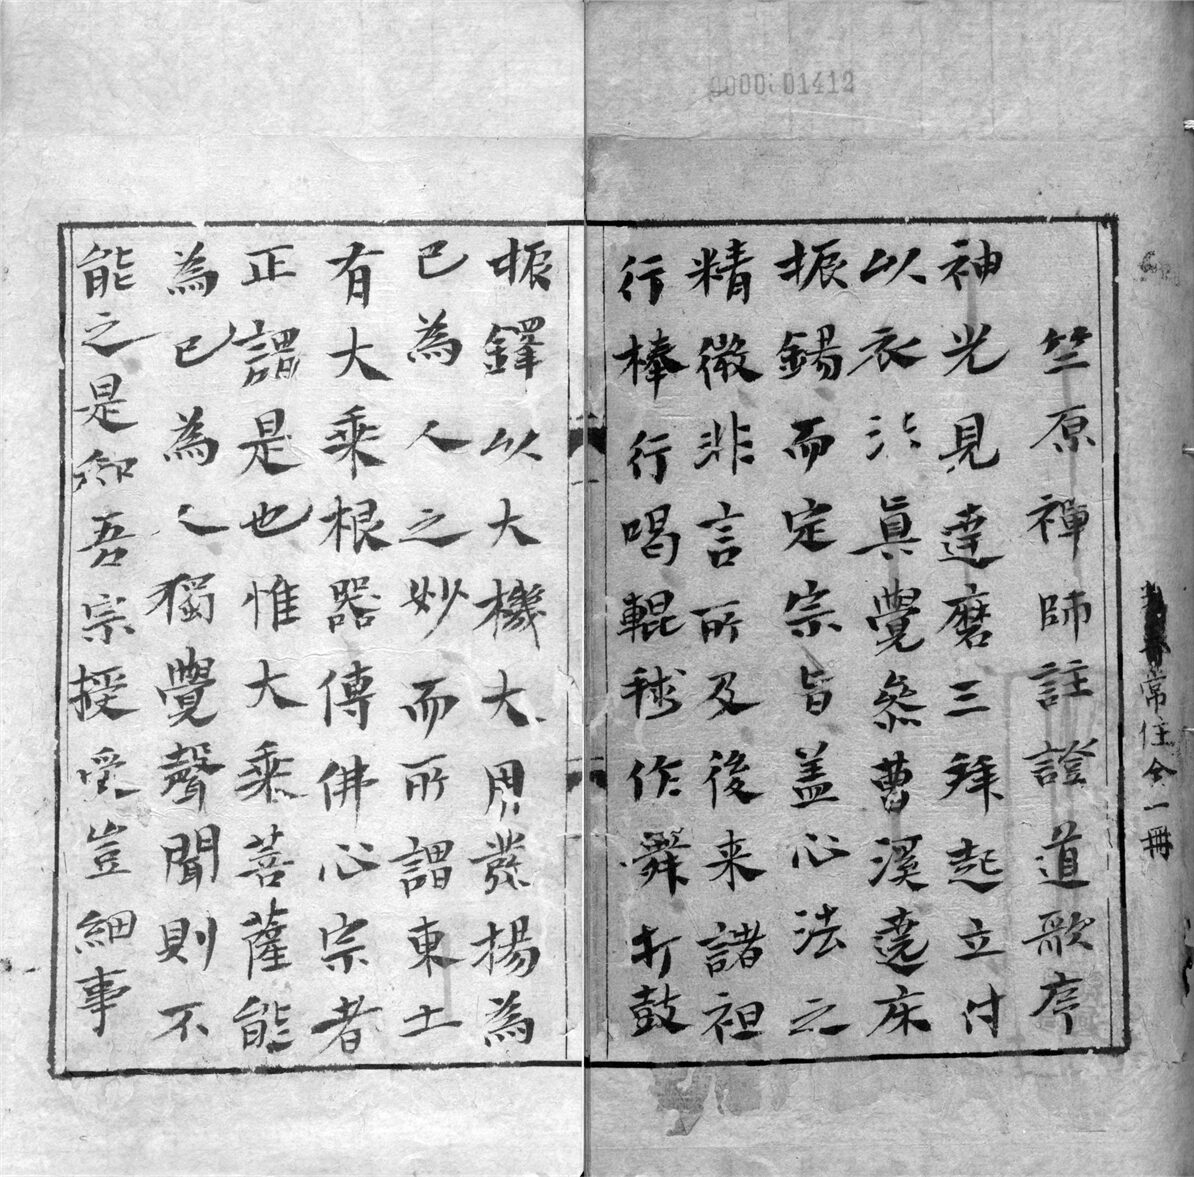 竺原禪師註證道歌序
神光見達磨三拜起立付
以衣法真覺叅曹溪遶床
振錫而定宗旨盖心法之
精微非言所及後来諸祖
行棒行喝輥毬作舞打鼓
振鐸以大機大用發揚為
已為人之妙而所謂東土
有大乘根器傳佛心宗者
正謂是也惟大乘菩薩能
為已為人獨覺聲聞則不
能之是知吾宗授受豈細事
常住仝一冊
01412